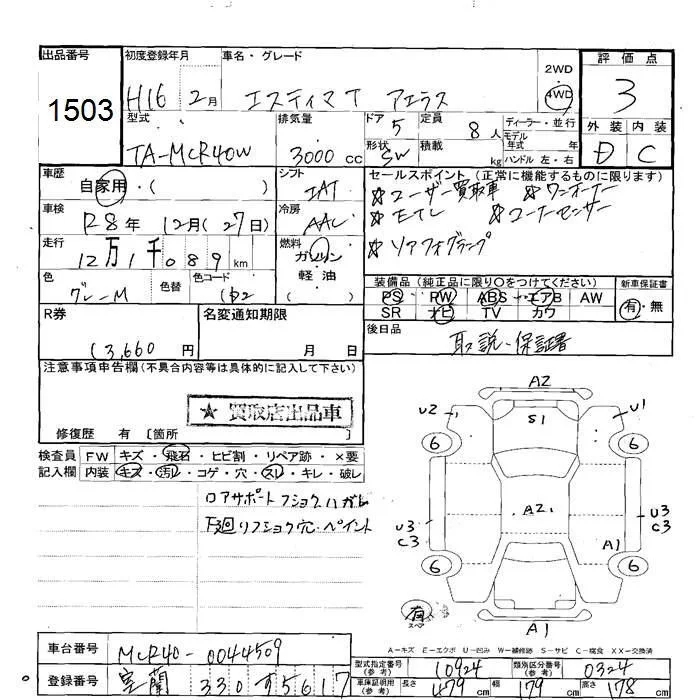 出品番号
1503
初度登録年月
H16 2月
車名・グレード
エスティマT アエラス
2WD
4WD
評価点
3
外装 内装
D C
型式
TA-MCR40W
排気量
3000 cc
ドア
5
形状
SW
定員
8人
積載
kg
ディーラー・並行
モデル
年式 年
ハンドル 左・右
車歴
自家用・( )
車検
R8年 12月(27日)
走行
12万1千089 km
色
グレーM
色替
色コード
シフト
IAT
冷房
AAC
燃料
ガソリン
軽油
セールスポイント(正常に機能するものに限ります)
☆ユーザー買取車 ☆ワンオーナー
☆ETC ☆コーナーセンサー
☆リアフォグランプ
装備品(純正品に限り○をつけてください)
PS PW ABS エアB AW
SR ナビ TV カワ
新車保証書
有・無
後日品
取説・保証書
R券
13,660円
名変通知期限
月 日
注意事項申告欄(不具合内容等は具体的に記入して下さい)
★ 買取店出品車
修復歴 有 〔箇所
検査員
記入欄
FW キズ・飛石・ヒビ割・リペア跡・×要
内装 キズ・汚レ・コゲ・穴・スレ・キレ・破レ
ロアサポートフショクハガレ
下廻リフショク穴・ペイント
A2
U2
U1
S1
6
6
A2
U3
C3
U3
C3
A1
6
6
有
スペア
A1
A-キズ E-エクボ U-凹み W-補修跡 S-サビ C-腐食 XX-交換済
車台番号
MCR40-0044509
登録番号
室蘭 330 す5617
型式指定番号
(参考)
10924
類別区分番号
(参考)
0324
車庫証明用
(参考)
長さ 479cm 幅 179cm 高さ 178cm